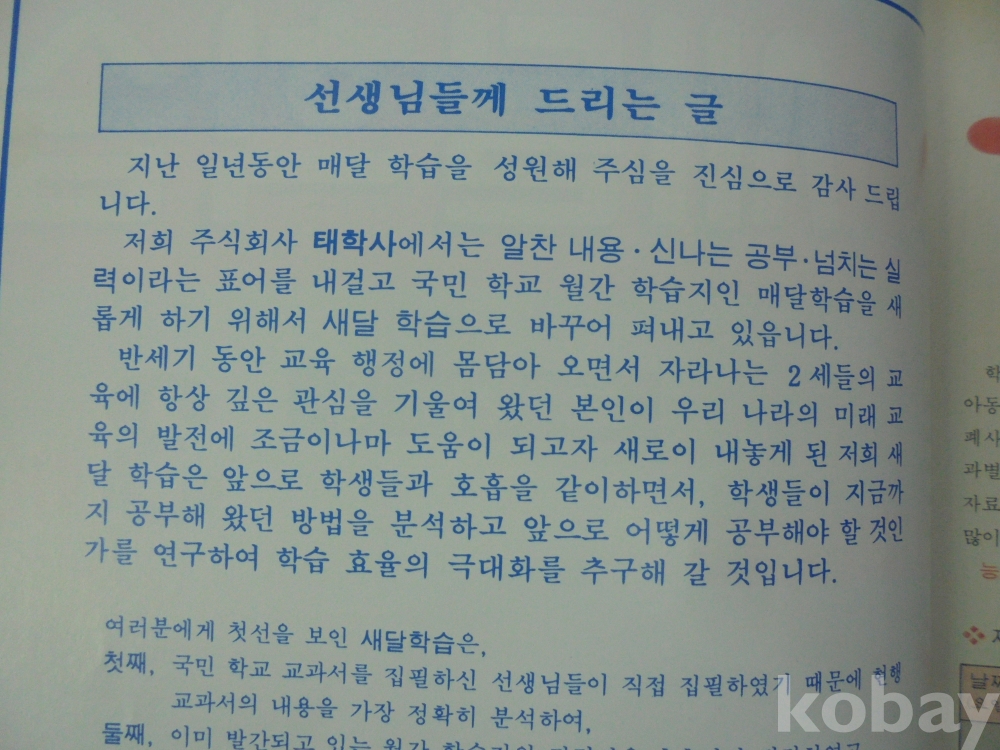 선생님들께 드리는 글
지난 일년동안 매달 학습을 성원해 주심을 진심으로 감사 드립
니다.
저희 주식회사 태학사에서는 알찬 내용·신나는 공부·넘치는 실
력이라는 표어를 내걸고 국민 학교 월간 학습지인 매달학습을 새
롭게 하기 위해서 새달 학습으로 바꾸어 펴내고 있읍니다.
반세기 동안 교육 행정에 몸담아 오면서 자라나는 2세들의 교
육에 항상 깊은 관심을 기울여 왔던 본인이 우리 나라의 미래 교
육의 발전에 조금이나마 도움이 되고자 새로이 내놓게 된 저희 새
달 학습은 앞으로 학생들과 호흡을 같이하면서, 학생들이 지금까
지 공부해 왔던 방법을 분석하고 앞으로 어떻게 공부해야 할 것인
가를 연구하여 학습 효율의 극대화를 추구해 갈 것입니다.
여러분에게 첫선을 보인 새달학습은,
첫째, 국민 학교 교과서를 집필하신 선생님들이 직접 집필하였기 때문에 현행
교과서의 내용을 가장 정확히 분석하여,
둘째, 이미 발간되고 있는 월간 학습지의
학
아동
폐사
과별
자료
많이
능
날짜
kobay